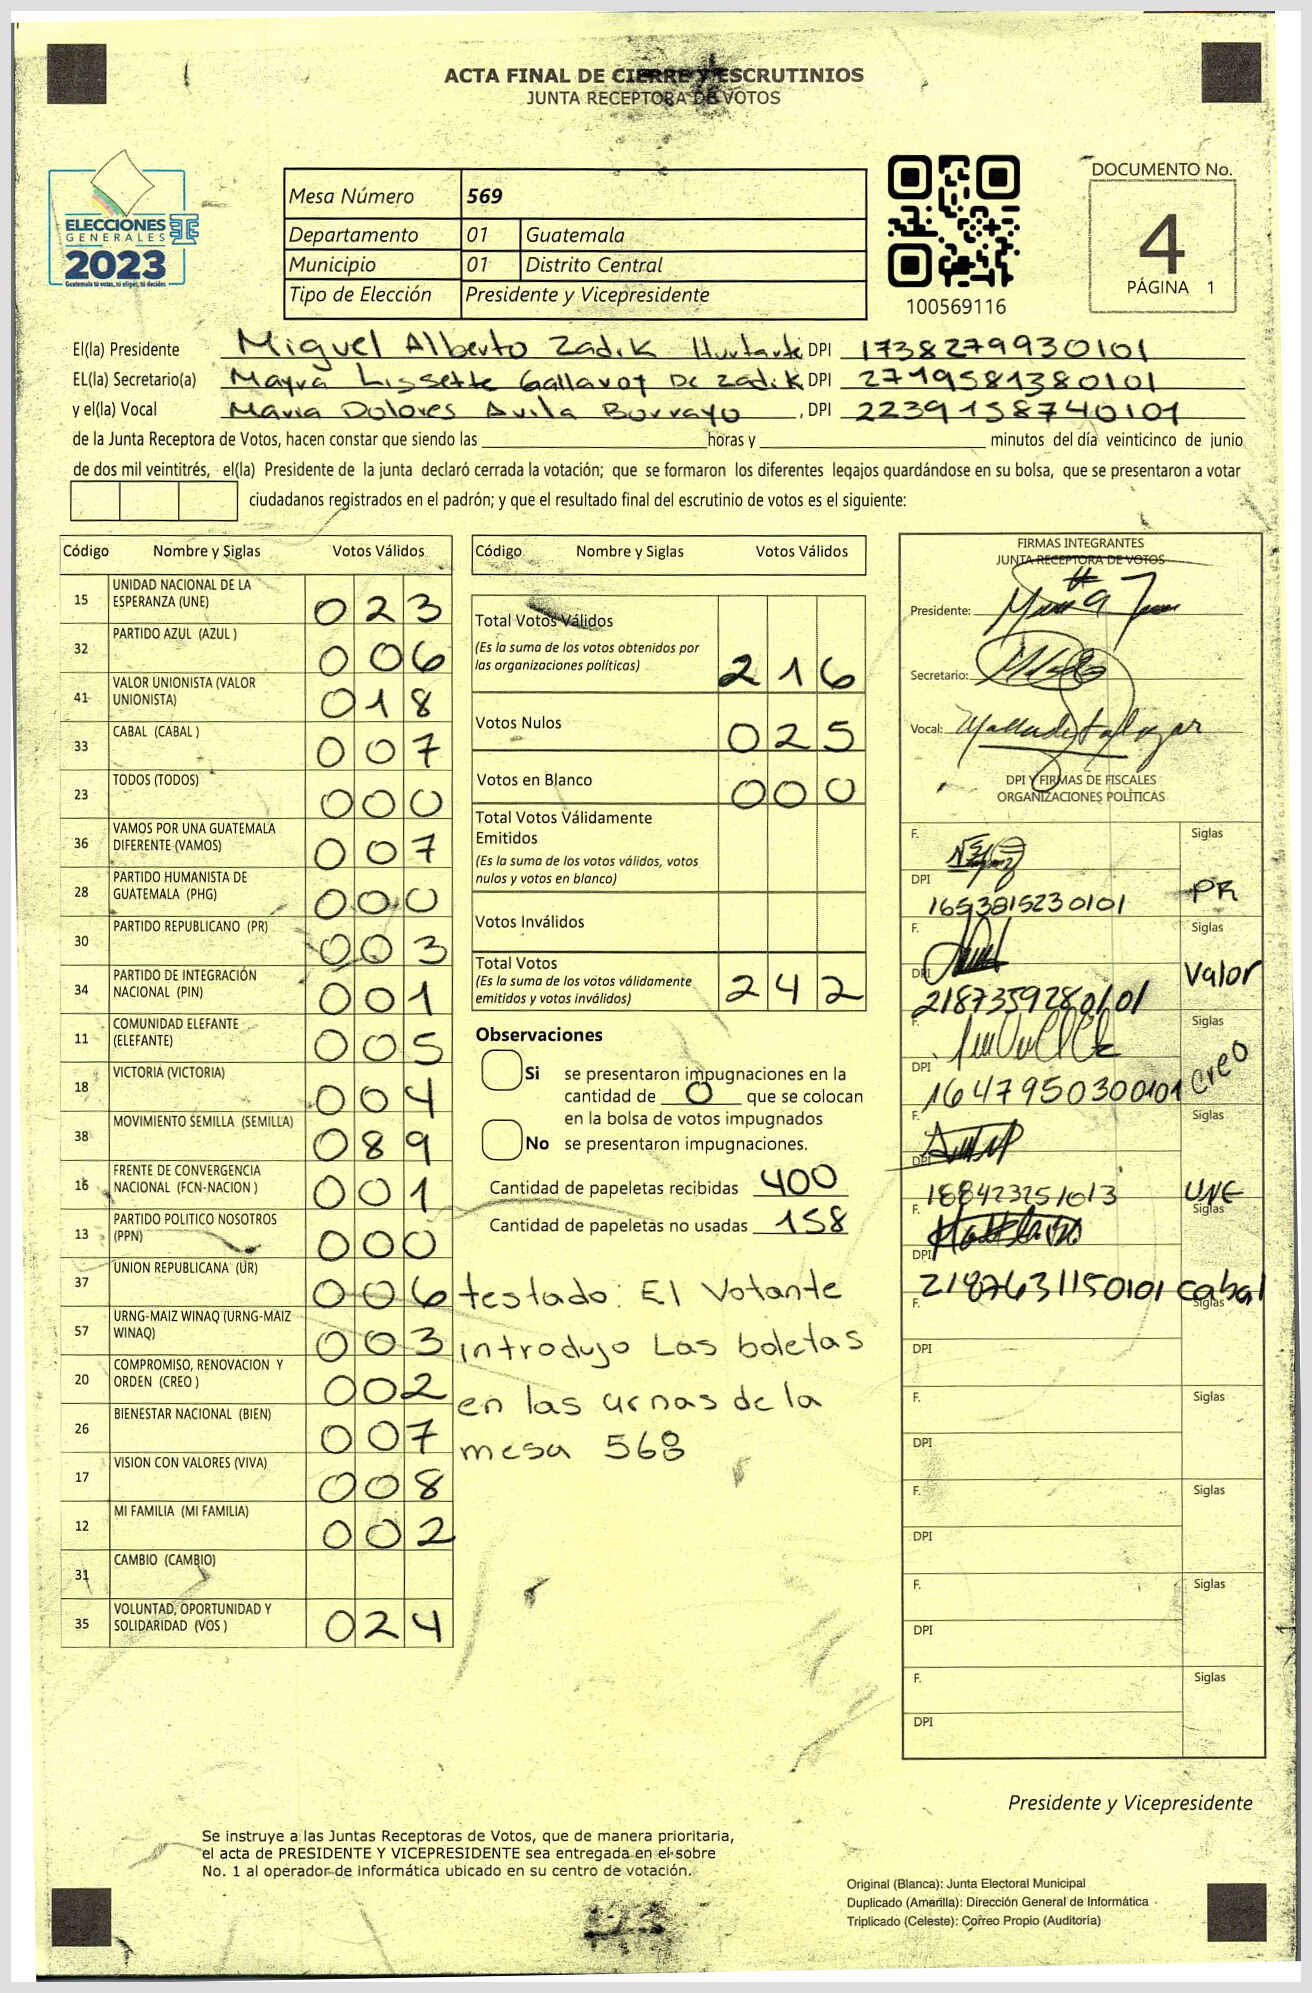 ACTA FINAL DE CIERRE Y ESCRUTINIOS
JUNTA RECEPTORA DE VOTOS
ELECCIONES
GENERALES
2023
Guatemala tú votas, tú eliges, tú decides
Mesa Número 569
Departamento 01 Guatemala
Municipio 01 Distrito Central
Tipo de Elección Presidente y Vicepresidente
100569116
DOCUMENTO No.
4
PÁGINA 1
El(la) Presidente Miguel Alberto Zadik Hurtarte DPI 1738279930101
EL(la) Secretario(a) Mayra Lissette Gallardo De Zadik DPI 2719581380101
y el(la) Vocal Maria Dolores Avila Burrayo, DPI 2239158740101
de la Junta Receptora de Votos, hacen constar que siendo las horas y minutos del día veinticinco de junio
de dos mil veintitrés, el(la) Presidente de la junta declaró cerrada la votación; que se formaron los diferentes legajos guardándose en su bolsa, que se presentaron a votar
ciudadanos registrados en el padrón; y que el resultado final del escrutinio de votos es el siguiente:
Código Nombre y Siglas Votos Válidos
15 UNIDAD NACIONAL DE LA ESPERANZA (UNE) 023
32 PARTIDO AZUL (AZUL ) 006
41 VALOR UNIONISTA (VALOR UNIONISTA) 018
33 CABAL (CABAL ) 007
23 TODOS (TODOS) 000
36 VAMOS POR UNA GUATEMALA DIFERENTE (VAMOS) 007
28 PARTIDO HUMANISTA DE GUATEMALA (PHG) 000
30 PARTIDO REPUBLICANO (PR) 003
34 PARTIDO DE INTEGRACIÓN NACIONAL (PIN) 001
11 COMUNIDAD ELEFANTE (ELEFANTE) 005
18 VICTORIA (VICTORIA) 004
38 MOVIMIENTO SEMILLA (SEMILLA) 089
16 FRENTE DE CONVERGENCIA NACIONAL (FCN-NACION ) 001
13 PARTIDO POLITICO NOSOTROS (PPN) 000
37 UNION REPUBLICANA (UR) 006
57 URNG-MAIZ WINAQ (URNG-MAIZ WINAQ) 003
20 COMPROMISO, RENOVACION Y ORDEN (CREO ) 002
26 BIENESTAR NACIONAL (BIEN) 007
17 VISION CON VALORES (VIVA) 008
12 MI FAMILIA (MI FAMILIA) 002
31 CAMBIO (CAMBIO)
35 VOLUNTAD, OPORTUNIDAD Y SOLIDARIDAD (VOS ) 024
Código Nombre y Siglas Votos Válidos
Total Votos Válidos
(Es la suma de los votos obtenidos por
las organizaciones políticas) 216
Votos Nulos 025
Votos en Blanco 000
Total Votos Válidamente
Emitidos
(Es la suma de los votos válidos, votos
nulos y votos en blanco)
Votos Inválidos
Total Votos
(Es la suma de los votos válidamente
emitidos y votos inválidos) 242
Observaciones
Si se presentaron impugnaciones en la
cantidad de 0 que se colocan
en la bolsa de votos impugnados
No se presentaron impugnaciones.
Cantidad de papeletas recibidas 400
Cantidad de papeletas no usadas 158
testado: El Votante
introdujo Las boletas
en las urnas de la
mesa 568
FIRMAS INTEGRANTES
JUNTA RECEPTORA DE VOTOS
Presidente:
Secretario:
Vocal:
DPI Y FIRMAS DE FISCALES
ORGANIZACIONES POLÍTICAS
F. Siglas
DPI 1653815230101 PR
F. Siglas
DPI 2187359280101 Valor
F. Siglas
DPI 1647950300101 creo
F. Siglas
DPI 188423251013 UNE
F. Siglas
DPI 2187631150101 cabal
F. Siglas
DPI
F. Siglas
DPI
F. Siglas
DPI
F. Siglas
DPI
F. Siglas
DPI
Presidente y Vicepresidente
Se instruye a las Juntas Receptoras de Votos, que de manera prioritaria,
el acta de PRESIDENTE Y VICEPRESIDENTE sea entregada en el sobre
No. 1 al operador de informática ubicado en su centro de votación.
Original (Blanca): Junta Electoral Municipal
Duplicado (Amarilla): Dirección General de Informática
Triplicado (Celeste): Correo Propio (Auditoría)